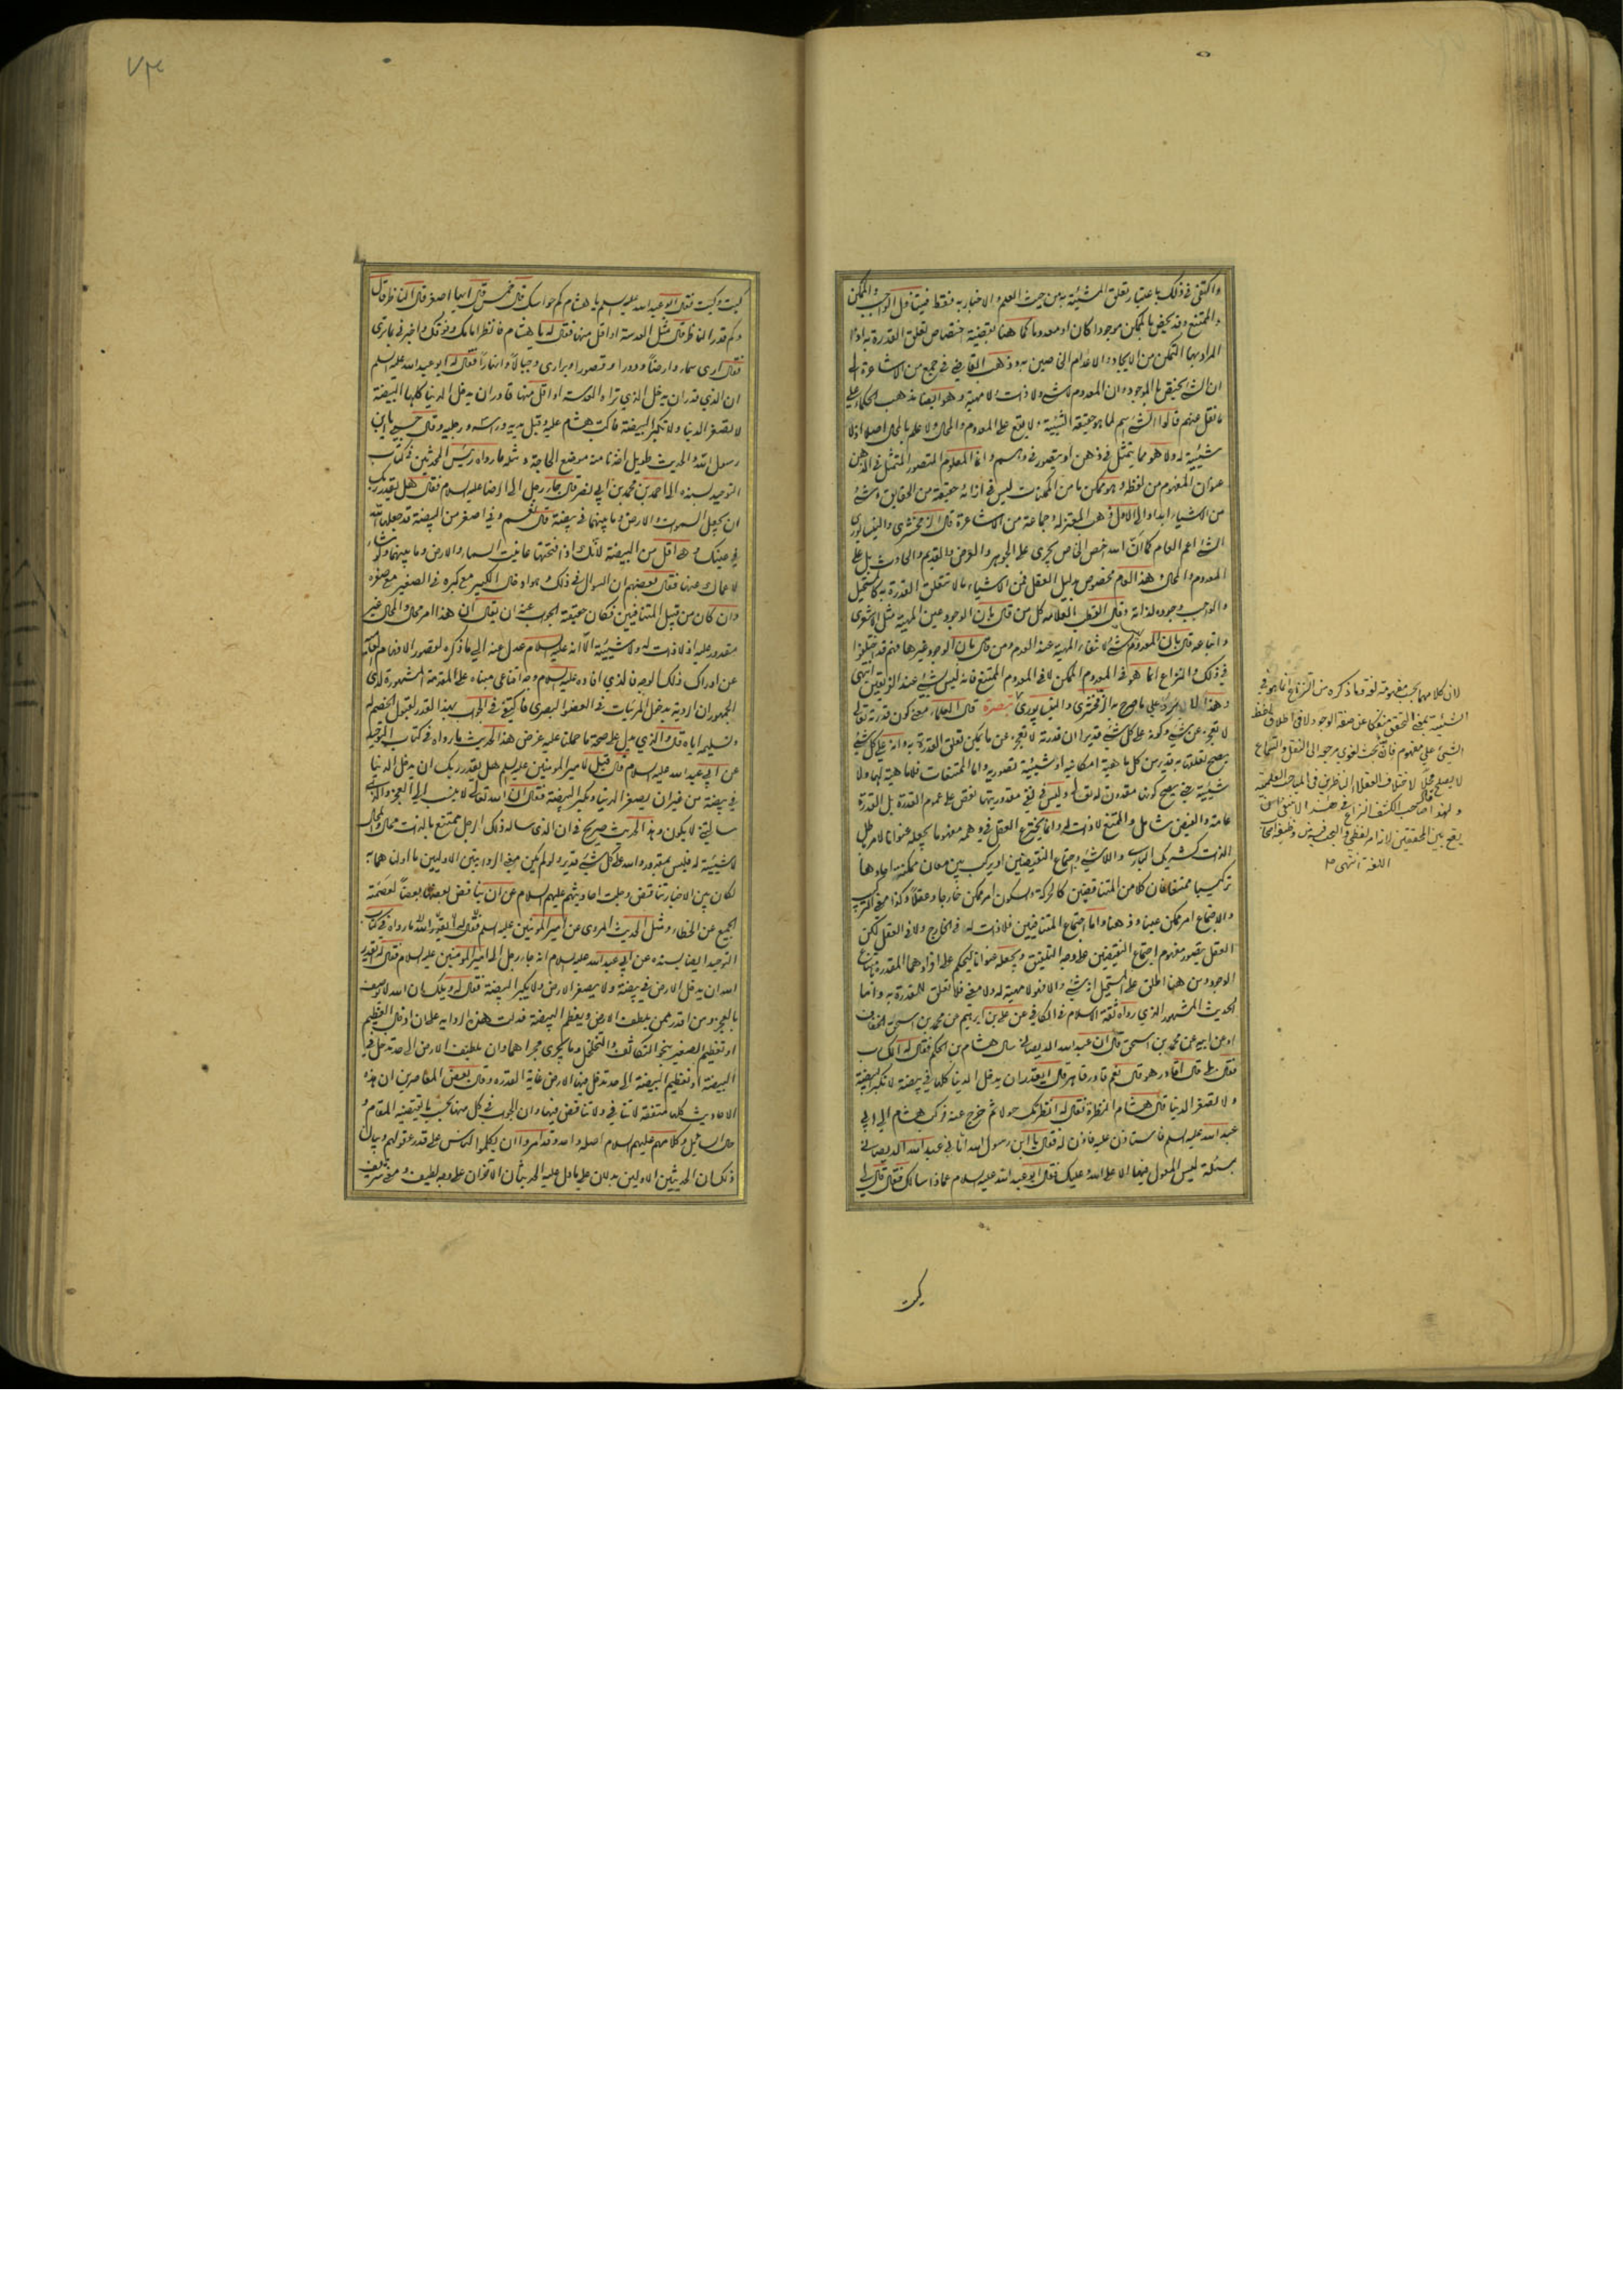 واكتفى فى ذلك باعتبار تعلق المشيئة به من حيث العلم والاخبار به فقط فيتناول الواجب والممكن
والممتنع وقد يخص بالممكن موجودا كان او معدوما كما هنا بقضية اختصاص تعلق القدرة به اذا
المراد بها التمكن من الايجاد والاعدام الخاصين به وذهب القاضى فى جمع من الاشاعرة الى
ان الشئ يختص بالموجود وان المعدوم لا شئ ولا ذات ولا مهية وهو ايضا مذهب الحكماء على
ما نقل عنهم قالوا الشئ اسم لما هو حقيقة الشيئية ولا يقع على المعدوم والمحال ولا علم بالمحال اصلا اذ لا
شيئية له ولا هو مما يتمثل فى ذهن او يتصور فى وهم وانما المعلوم المتصور المتمثل فى الذهن
عنوان المفهوم من لفظه وهو ممكن ما من الممكنات ليس فى ازائه حقيقة من الحقايق وشئ
من الاشياء ابدا والى الاول ذهب المعتزلة وجماعة من الاشاعرة قال الزمخشرى والنيسابورى
الشئ اعم العام كما ان الله اخص الخاص يجرى على الجوهر والعرض والقديم والحادث بل على
المعدوم والمحال وهذا العام مخصوص بدليل العقل فمن الاشياء ما لا تتعلق القدرة به كالمستحيل
والواجب وجوده لذاته وقال القطب العلامه كل من قال بان الوجود عين المهية مثل الاشعرى
واتباعه قال بان المعدوم ليس شئ لانتفاء المهية عند العدم ومن قال بان الوجود غيرها فهم قد اختلفوا
فى ذلك والنزاع انما هو فى المعدوم الممكن لا فى المعدوم الممتنع فانه ليس بشئ عند الفريقين انتهى
وهذا يرد على ما صرح به الزمخشرى والنيسابورى تبصرة قال العلماء معنى كون قدرته تعالى
لا تعجز عن شئ وكونه على كل شئ قديرا ان قدرته لا تعجز عن ما يمكن تعلق القدرة به وانه على كل شئ
يصح تعلقها به قدير من كل ما هية امكانيه او شيئية تصوريه واما الممتنعات فلا ماهية لها ولا
شيئية حتى يصح كونها مقدورة له تعالى وليس فى نفى مقدوريتها نقص على عموم القدرة بل القدرة
عامة والفيض شامل والممتنع لا ذات له وانما يخترع العقل فى وهمه مفهوما يجعله عنوانا لامر باطل
الذات كشريك البارى واللاشئ واجتماع النقيضين او يركب بين معان ممكنة احادها
تركيبا ممتنعا فان كلا من المتناقضين كالحركة والسكون امر ممكن خارجا وعقلا وكذا معنى التركيب
والاجتماع امر ممكن عينا وذهنا واما اجتماع المتنافيين فلا ذات له فى الخارج ولا فى العقل لكن
العقل يتصور مفهوم اجتماع النقيضين على وجه التلفيق ويجعله عنوانا ليحكم على افراده المقدرة بامتناع
الوجود ومن هنا اطلق على المستحيل انه شئ والا فهو لا مهية له ولا معنى فلا تعلق للقدرة به واما
الحديث المشهور الذى رواه ثقة الاسلام فى الكافى عن على بن ابراهيم عن محمد بن اسحق الخفاف
او عن ابيه عن محمد بن اسحق قال ان عبد الله الديصانى سال هشام بن الحكم فقال له الك رب
فقال بلى قال اقادر هو قال نعم قادر قاهر قال ايقدر ان يدخل الدنيا كلها فى بيضة لا تكبر البيضة
ولا تصغر الدنيا قال هشام النظرة فقال له انظرتك حولا ثم خرج عنه فركب هشام الى ابى
عبد الله عليه السلم فاستاذن عليه فاذن له فقال يا ابن رسول الله اتانى عبد الله الديصانى
بمسئلة ليس المعول فيها الا على الله وعليك فقال ابو عبد الله عليه السلام عماذا سالك فقال قال لى
كيت
لان كلامها بحسب مفهومه لغة وما ذكره من النزاع انما هو فى
الشيئية بمعنى التحقق منفكا عن صفة الوجود لا فى اطلاق لفظ
الشئ على مفهوم فانه بحث لغوى مرجعه الى النقل والسماع
لا يصلح محلا لاختلاف العقلاء الناظرين فى المباحث العلمية
ولهذا قال صاحب الكشف النزاع فى هذا لا ينبغى ان
يقع بين المحققين لانه امر لفظى والبحث فيه من وظيفة اصحاب
اللغة انتهى منه
٧٣
كيت وكيت فقال ابو عبد الله عليه السلم يا هشام كم حواسك قال خمس قال ايها اصغر قال الناظر قال
وكم قدر الناظر قال مثل العدسة او اقل منها فقال له يا هشام فانظر امامك وفوقك واخبرنى بما ترى
فقال ارى سماء وارضا ودورا وقصورا وبرارى وجبالا وانهارا فقال له ابو عبد الله عليه السلم
ان الذى قدر ان يدخل الذى تراه العدسة او اقل منها قادر ان يدخل الدنيا كلها البيضة
لا تصغر الدنيا ولا تكبر البيضة فاكب هشام عليه وقبل يديه وراسه ورجليه وقال حسبى يا ابن
رسول الله والحديث طويل اخذنا منه موضع الحاجة ومثله ما رواه رئيس المحدثين فى كتاب
التوحيد بسنده الى احمد بن محمد بن ابى نصر قال جاء رجل الى الرضا عليه السلام فقال هل يقدر ربك
ان يجعل السموات والارض وما بينهما فى بيضة قال نعم وفى اصغر من البيضة قد جعلها الله
فى عينك وهى اقل من البيضة لانك اذا فتحتها عاينت السماء والارض وما بينهما ولو شاء
لاعماك عنها فقال بعضهم ان السؤال فى ذلك وهو ادخال الكبير مع كبره فى الصغير مع صغره
وان كان من قبيل المتنافيين فكان حقيقة الجواب عنه ان يقال ان هذا امر محال والمحال غير
مقدور عليه اذ لا ذات له ولا شيئية الا انه عليه السلام عدل عنه الى ما ذكره لقصور الافهام العامة
عن ادراك ذلك الوجه فالذى افاده عليه السلام وجه اقناعى مبناه على المقدمة المشهورة لدى
الجمهور ان الرؤية بدخول المرئيات فى العضو البصرى فاكتفى فى الجواب بهذا القدر لقبول الخصم له
وتسليمه اياه قلت والذى يدل على صحة ما حملنا عليه غرض هذا الحديث ما رواه فى كتاب التوحيد
عن ابى عبد الله عليه السلام قال قيل لامير المؤمنين عليه السلم هل يقدر ربك ان يدخل الدنيا
فى بيضة من غير ان يصغر الدنيا وتكبر البيضة فقال ان الله تعالى لا ينسب الى العجز والذى
سالتنى لا يكون وهذا الحديث صريح فى ان الذى ساله ذلك الرجل ممتنع بالذات محال والمحال
لا شيئية له فليس بمقدور والله على كل شئ قدير ولو لم يكن معنى الروايتين الاوليين ما اولناهما به
لكان بين الاخبار تناقض وجلت احاديثهم عليهم السلام عن ان يناقض بعضها بعضا لعصمة
الجميع عن الخطاء ومثل الحديث المروى عن امير المؤمنين عليه السلم ما رواه فى كتاب
التوحيد ايضا بسنده عن ابى عبد الله عليه السلام انه جاء رجل الى امير المؤمنين عليه السلام فقال ايقدر
الله ان يدخل الارض فى بيضة ولا يصغر الارض ولا يكبر البيضة فقال له ويلك ان الله لا يوصف
بالعجز ومن اقدر ممن يلطف الارض ويعظم البيضة فدلت هذه الرواية على ان ادخال العظيم
او تعظيم الصغير بنحو التكاثف والتخلخل وما يجرى مجراهما وان تلطيف الارض الى حد تدخل فى
البيضة او تعظيم البيضة الى حد تدخل فيها الارض غاية القدرة وقال بعض المعاصرين ان هذه
الاحاديث كلها متفقة لا تنافى ولا تناقض فيها وان الجواب فى كل منها بحسب ما يقتضيه المقام و
حال السائل وكلامهم عليهم السلام اصله واحد وقد امروا ان يكلموا الناس على قدر عقولهم وبيان
ذلك ان الحديثين الاولين يدلان على ما دل عليه الحديثان الاخران على وجه لطيف ومعنى شريف